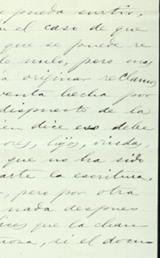 pueda surtir,
el caso de que
que se puede re
lo nulo, pero no,
a originar reclamo
venta hecha por
disponente de la
ien dice eso debe
ores, hijos, viuda,
que no ha sido
arte la escritura,
, pero por otra
nada despues
que la chan
si el docum